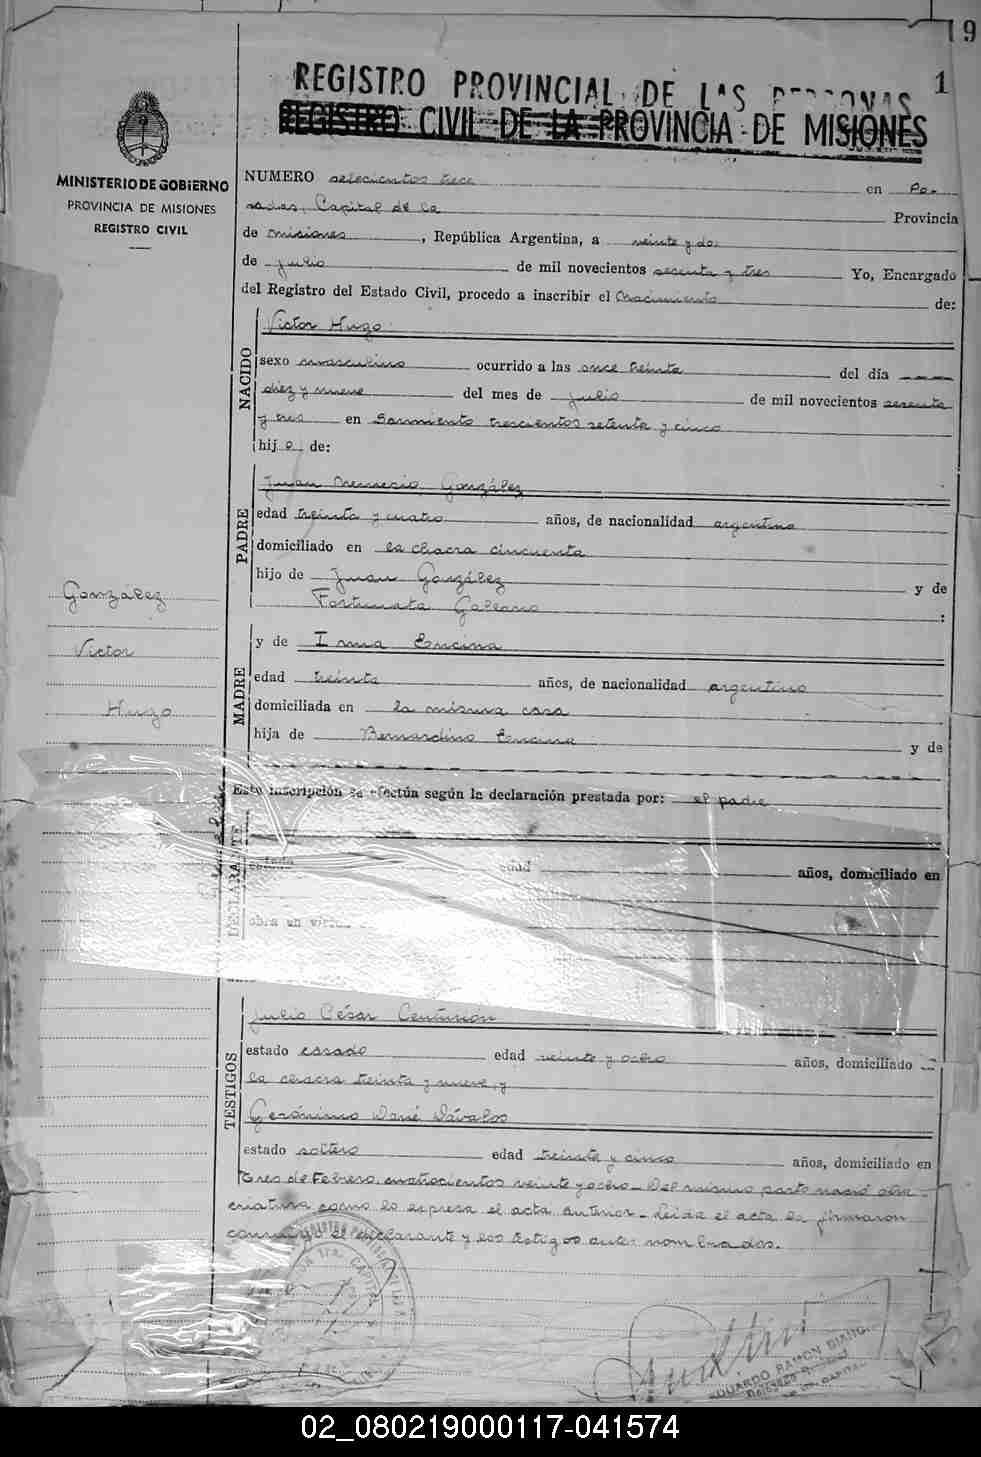 19
1
REGISTRO PROVINCIAL DE LAS PERSONAS
REGISTRO CIVIL DE LA PROVINCIA DE MISIONES
MINISTERIO DE GOBIERNO
PROVINCIA DE MISIONES
REGISTRO CIVIL
NUMERO setecientos trece en Po-
sadas, Capital de la Provincia
de Misiones, República Argentina, a veinte y dos
de julio de mil novecientos sesenta y tres Yo, Encargado
del Registro del Estado Civil, procedo a inscribir el Nacimiento de:
NACIDO
Victor Hugo
sexo masculino ocurrido a las once treinta del día
diez y nueve del mes de julio de mil novecientos sesenta
y tres en Sarmiento trescientos setenta y cinco
hijo de:
PADRE
Juan Nemesio González
edad treinta y cuatro años, de nacionalidad argentino
domiciliado en la chacra cincuenta
hijo de Juan González y de
Fortunata Galeano :
González
Victor
Hugo
MADRE
y de Irma Encina
edad treinta años, de nacionalidad argentino
domiciliada en la misma casa
hija de Bernardino Encina y de
Esta inscripción se efectúa según la declaración prestada por: el padre
DECLARANTE
estado edad años, domiciliado en
obra en virtud
TESTIGOS
Julio César Centurión
estado casado edad veinte y ocho años, domiciliado
la chacra treinta y nueve, y
Gerónimo Dávalos
estado soltero edad treinta y cinco años, domiciliado en
Tres de Febrero cuatrocientos veinte y ocho - Del mismo parto nació otra
criatura como lo expresa el acta anterior - Leida el acta la firmaron
conmigo el declarante y los testigos antes nombrados.
EDUARDO RAMON
02_080219000117-041574